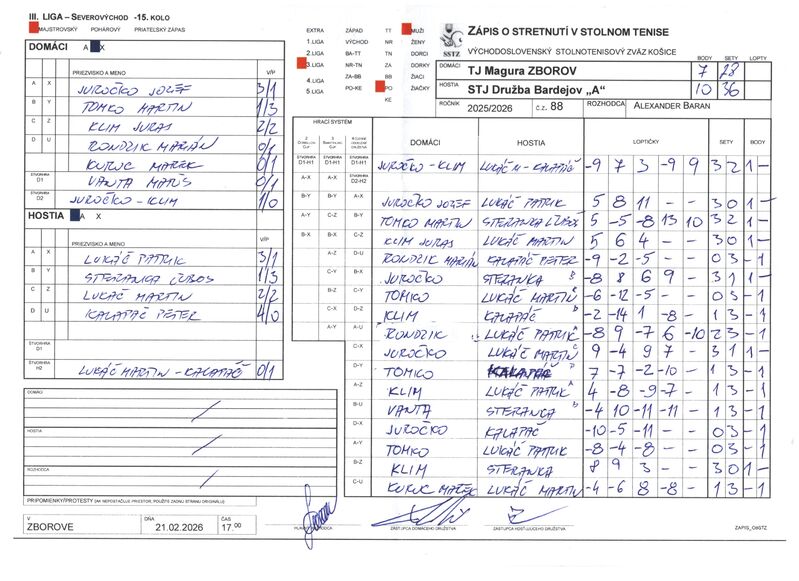 III. LIGA – SEVEROVÝCHOD -15. KOLO
MAJSTROVSKÝ POHÁROVÝ PRIATEĽSKÝ ZÁPAS
DOMÁCI A X
PRIEZVISKO A MENO V/P
A X JUROČKO JOZEF 3/1
B Y TOMKO MARTIN 1/3
C Z KLIM JURAJ 2/2
D U RONDZIK MARIÁN 0/1
KURUC MAREK 0/1
ŠTVORHRA D1 VANTA MATÚŠ 0/1
ŠTVORHRA D2 JUROČKO - KLIM 1/0
HOSTIA A X
PRIEZVISKO A MENO V/P
A X LUKÁČ PATRIK 3/1
B Y ŠTEFANKA ĽUBOŠ 1/3
C Z LUKÁČ MARTIN 2/2
D U KALAPÁČ PETER 4/0
ŠTVORHRA D1
ŠTVORHRA H2 LUKÁČ MARTIN - KALAPÁČ 0/1
DOMÁCI
HOSTIA
ROZHODCA
PRIPOMIENKY/PROTESTY (AK NEPOSTAČUJE PRIESTOR, POUŽITE ZADNÚ STRANU ORIGINÁLU)
V ZBOROVE DŇA 21.02.2026 ČAS 17.00
EXTRA ZÁPAD TT MUŽI
1.LIGA VÝCHOD NR ŽENY
2.LIGA BA-TT TN DORCI
3.LIGA NR-TN ZA DORKY
4.LIGA ZA-BB BB ŽIACI
5.LIGA PO-KE PO ŽIAČKY
KE
SSTZ
ZÁPIS O STRETNUTÍ V STOLNOM TENISE
VÝCHODOSLOVENSKÝ STOLNOTENISOVÝ ZVÄZ KOŠICE
BODY SETY LOPTY
DOMÁCI TJ Magura ZBOROV 7 28
HOSTIA STJ Družba Bardejov „A“ 10 36
ROČNÍK 2025/2026 č.z. 88 ROZHODCA ALEXANDER BARAN
HRACÍ SYSTÉM DOMÁCI HOSTIA LOPTIČKY SETY BODY
JUROČKO - KLIM LUKÁČ M - KALAPÁČ -9 7 3 -9 9 3 2 1 -
JUROČKO JOZEF LUKÁČ PATRIK 5 8 11 - - 3 0 1 -
TOMKO MARTIN ŠTEFANKA ĽUBOŠ 5 -5 -8 13 10 3 2 1 -
KLIM JURAJ LUKÁČ MARTIN 5 6 4 - - 3 0 1 -
RONDZIK MARIÁN KALAPÁČ PETER -9 -2 -5 - - 0 3 - 1
JUROČKO ŠTEFANKA -8 8 6 9 - 3 1 1 -
TOMKO LUKÁČ MARTIN -6 -12 -5 - - 0 3 - 1
KLIM KALAPÁČ -2 -14 1 -8 - 1 3 - 1
RONDZIK LUKÁČ PATRIK -8 9 -7 6 -10 2 3 - 1
JUROČKO LUKÁČ MARTIN 9 -4 9 7 - 3 1 1 -
TOMKO 7 -7 -2 -10 - 1 3 - 1
KLIM LUKÁČ PATRIK 4 -8 -9 -7 - 1 3 - 1
VANTA ŠTEFANKA -4 10 -11 -11 - 1 3 - 1
JUROČKO KALAPÁČ -10 -5 -11 - - 0 3 - 1
TOMKO LUKÁČ PATRIK -8 -4 -8 - - 0 3 - 1
KLIM ŠTEFANKA 8 9 3 - - 3 0 1 -
KURUC MAREK LUKÁČ MARTIN -4 -6 8 -8 - 1 3 - 1
ZÁSTUPCA DOMÁCEHO DRUŽSTVA ZÁSTUPCA HOSŤUJÚCEHO DRUŽSTVA ZAPIS_OSTZ